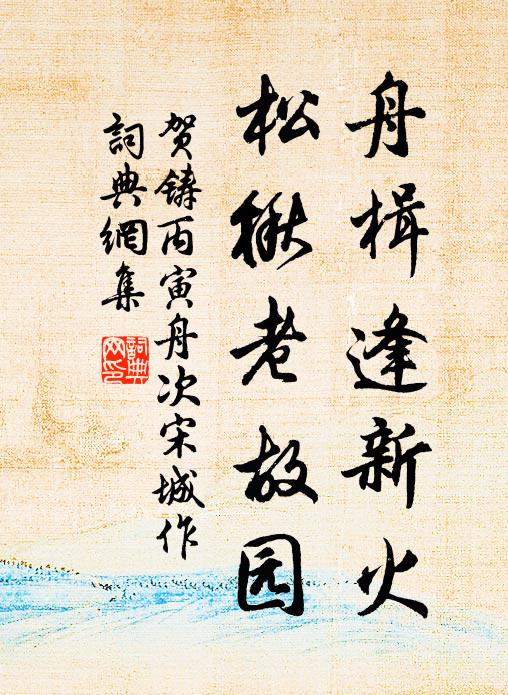 舟楫逢新火
松楸老故园
贺鋳丙寅舟次宋城作
詞典網集
詞典网印